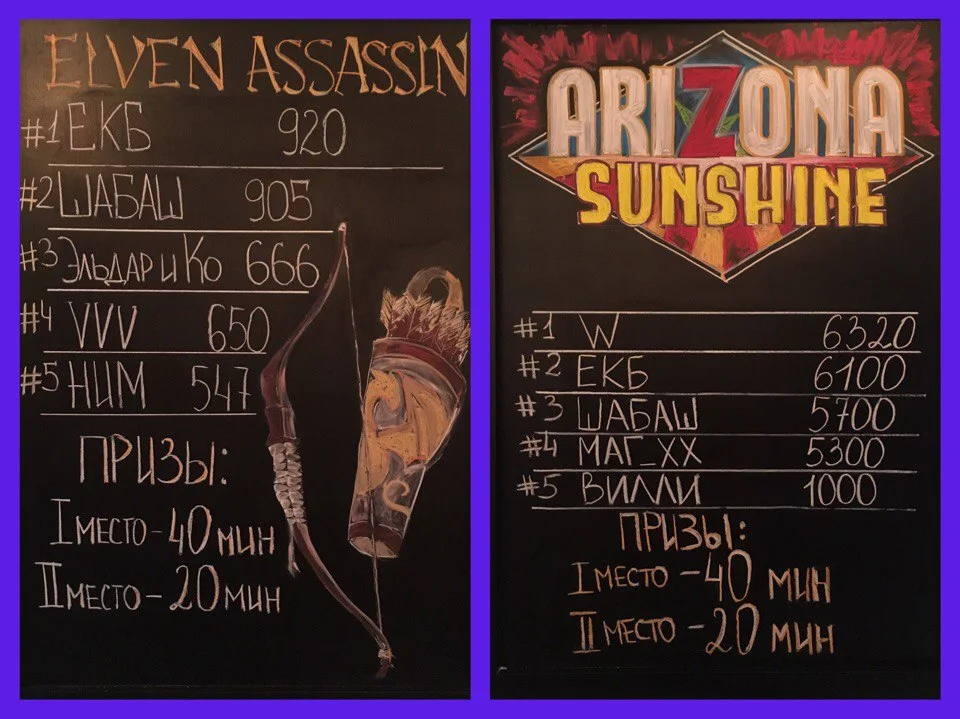 ELVEN ASSASSIN
#1 ЕКБ 920
#2 ШАБАШ 905
#3 Эльдар и Ко 666
#4 VVV 650
#5 НИМ 547
ПРИЗЫ:
I место - 40 мин
II место - 20 мин
ARIZONA
SUNSHINE
#1 W 6320
#2 ЕКБ 6100
#3 ШАБАШ 5700
#4 МАГ_ХХ 5300
#5 ВИЛЛИ 1000
ПРИЗЫ:
I место - 40 мин
II место - 20 мин